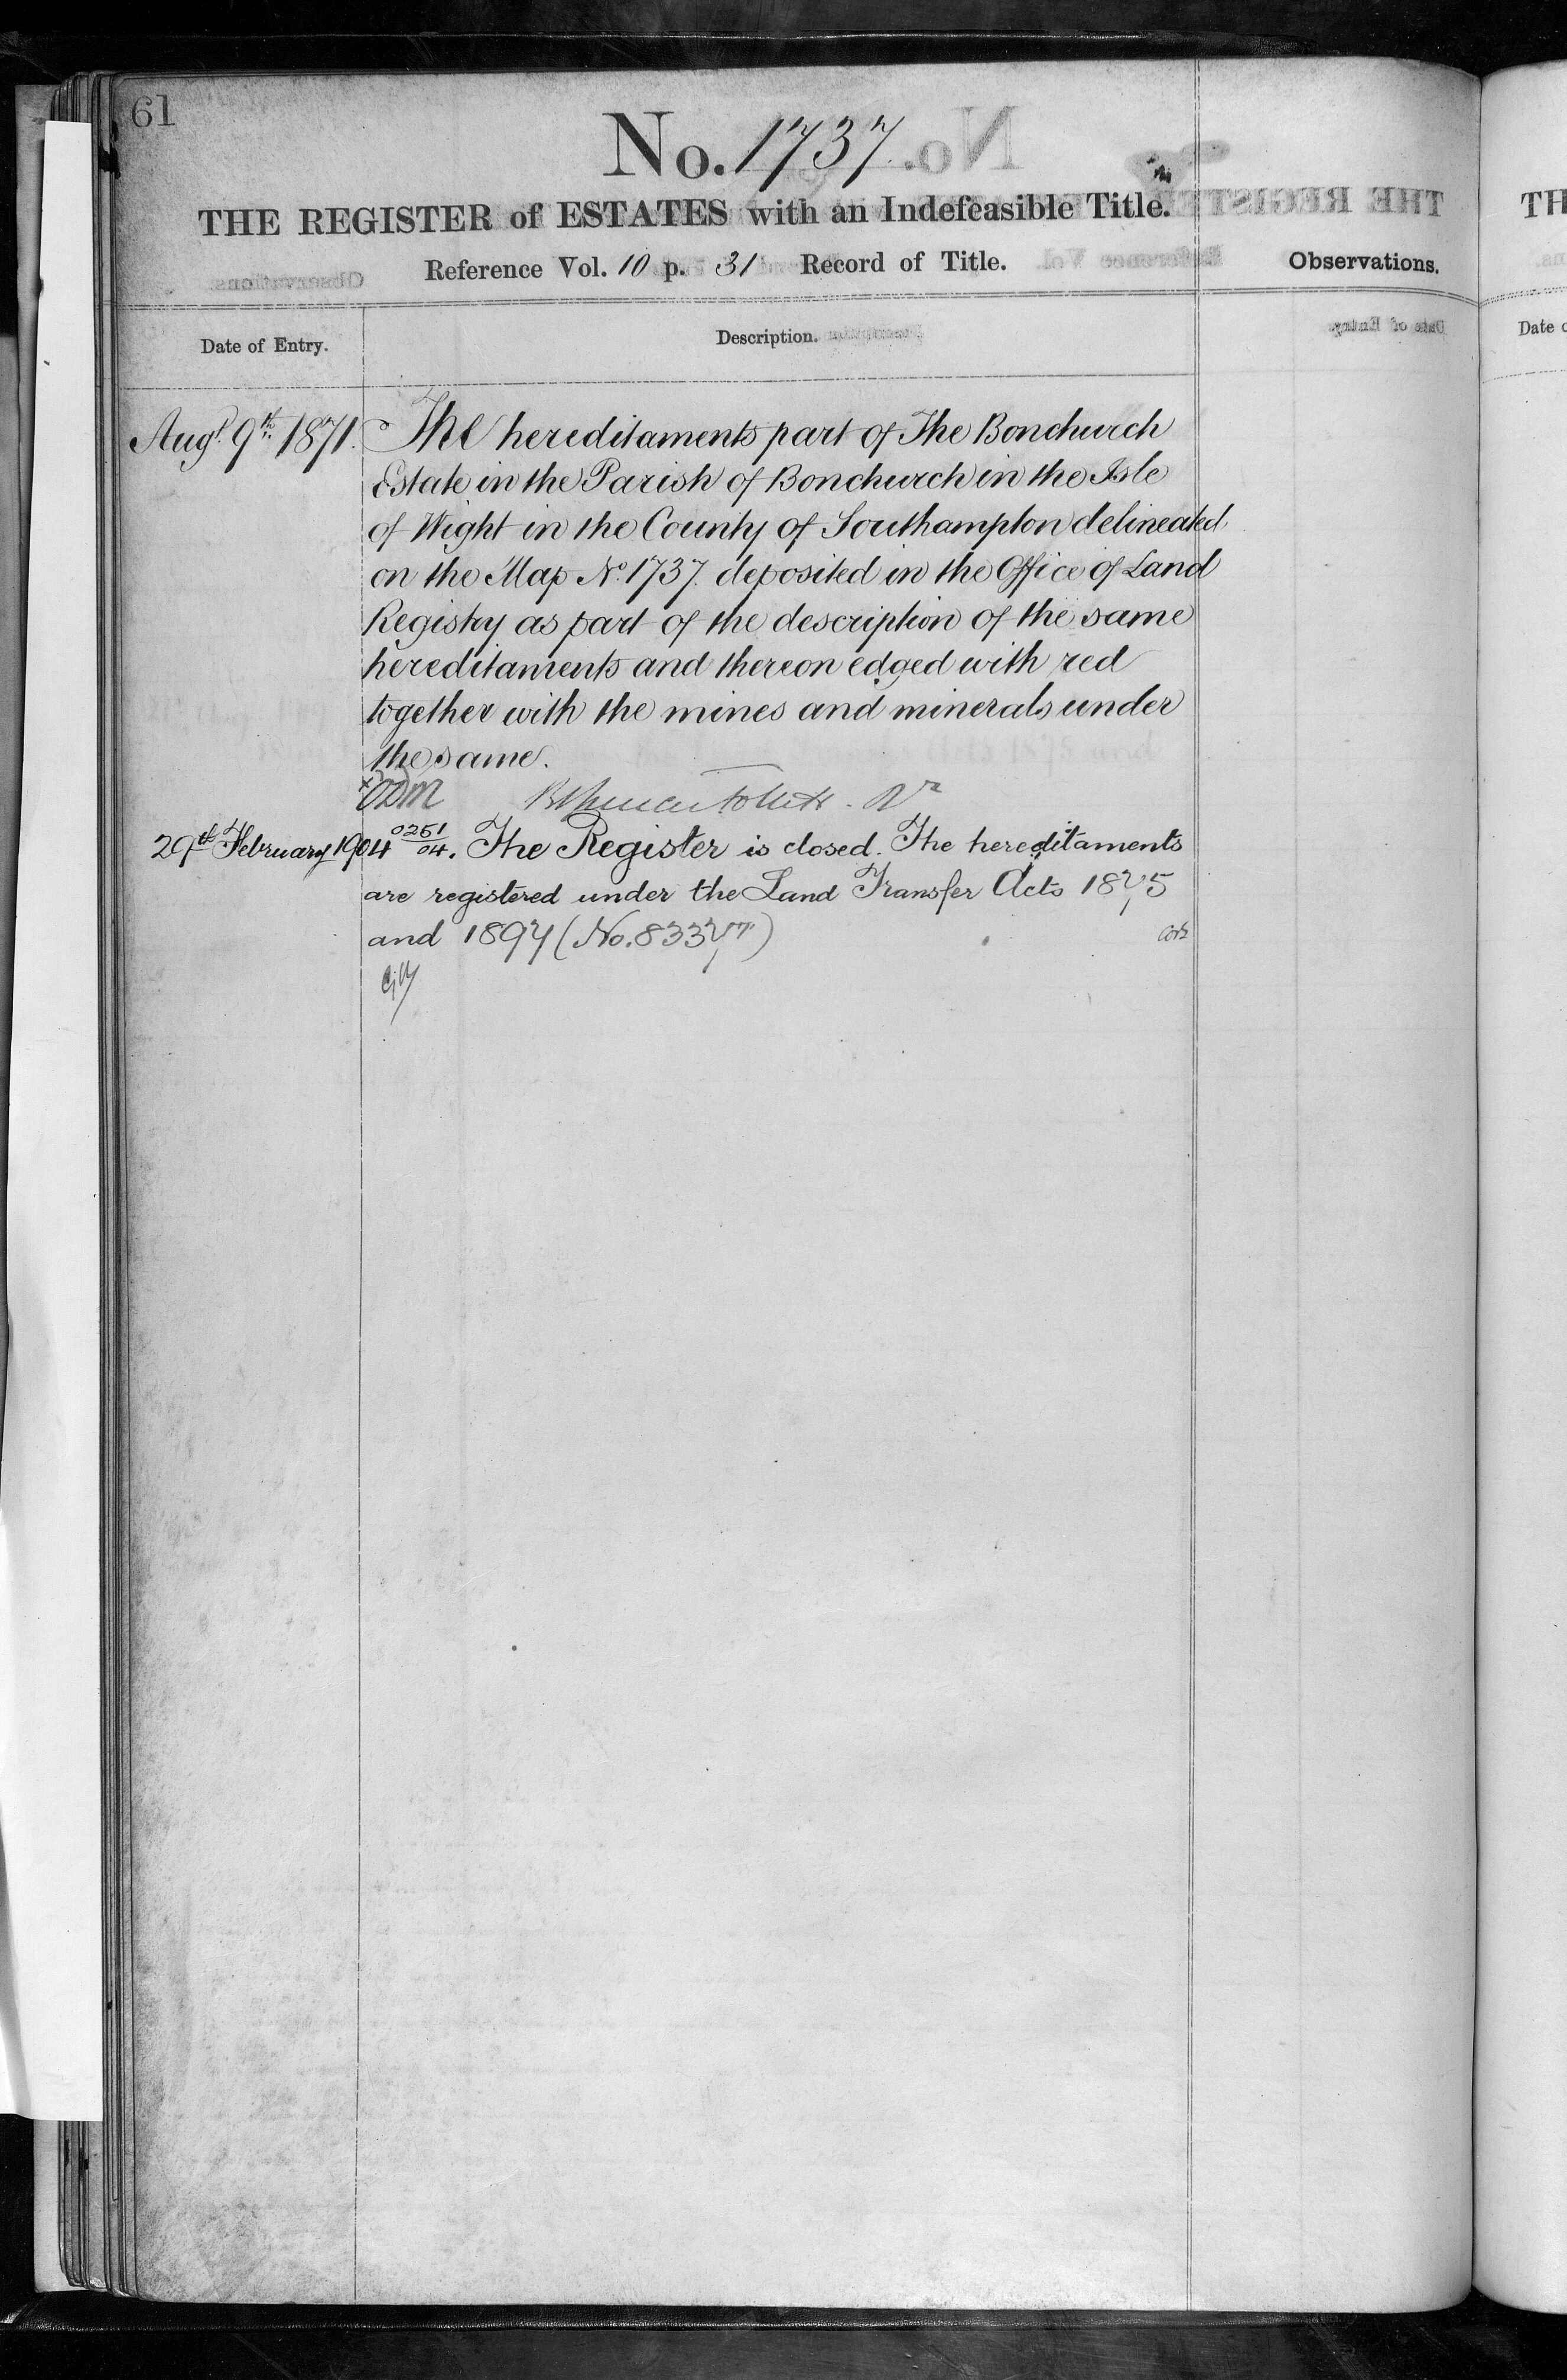 61
No. 1737.
THE REGISTER of ESTATES with an Indefeasible Title.
Reference Vol. 10 p. 31 Record of Title.
Observations.
Date of Entry.
Description.
Augt. 9th. 1871.
The hereditaments part of The Bonchurch
Estate in the Parish of Bonchurch in the Isle
of Wight in the County of Southampton delineated
on the Map No. 1737. deposited in the Office of Land
Registry as part of the description of the same
hereditaments and thereon edged with red
together with the mines and minerals under
the same.
29th February 1904 0261/04. The Register is closed. The hereditaments
are registered under the Land Transfer Acts 1875
and 1897 (No. 83377)
TH
Date o